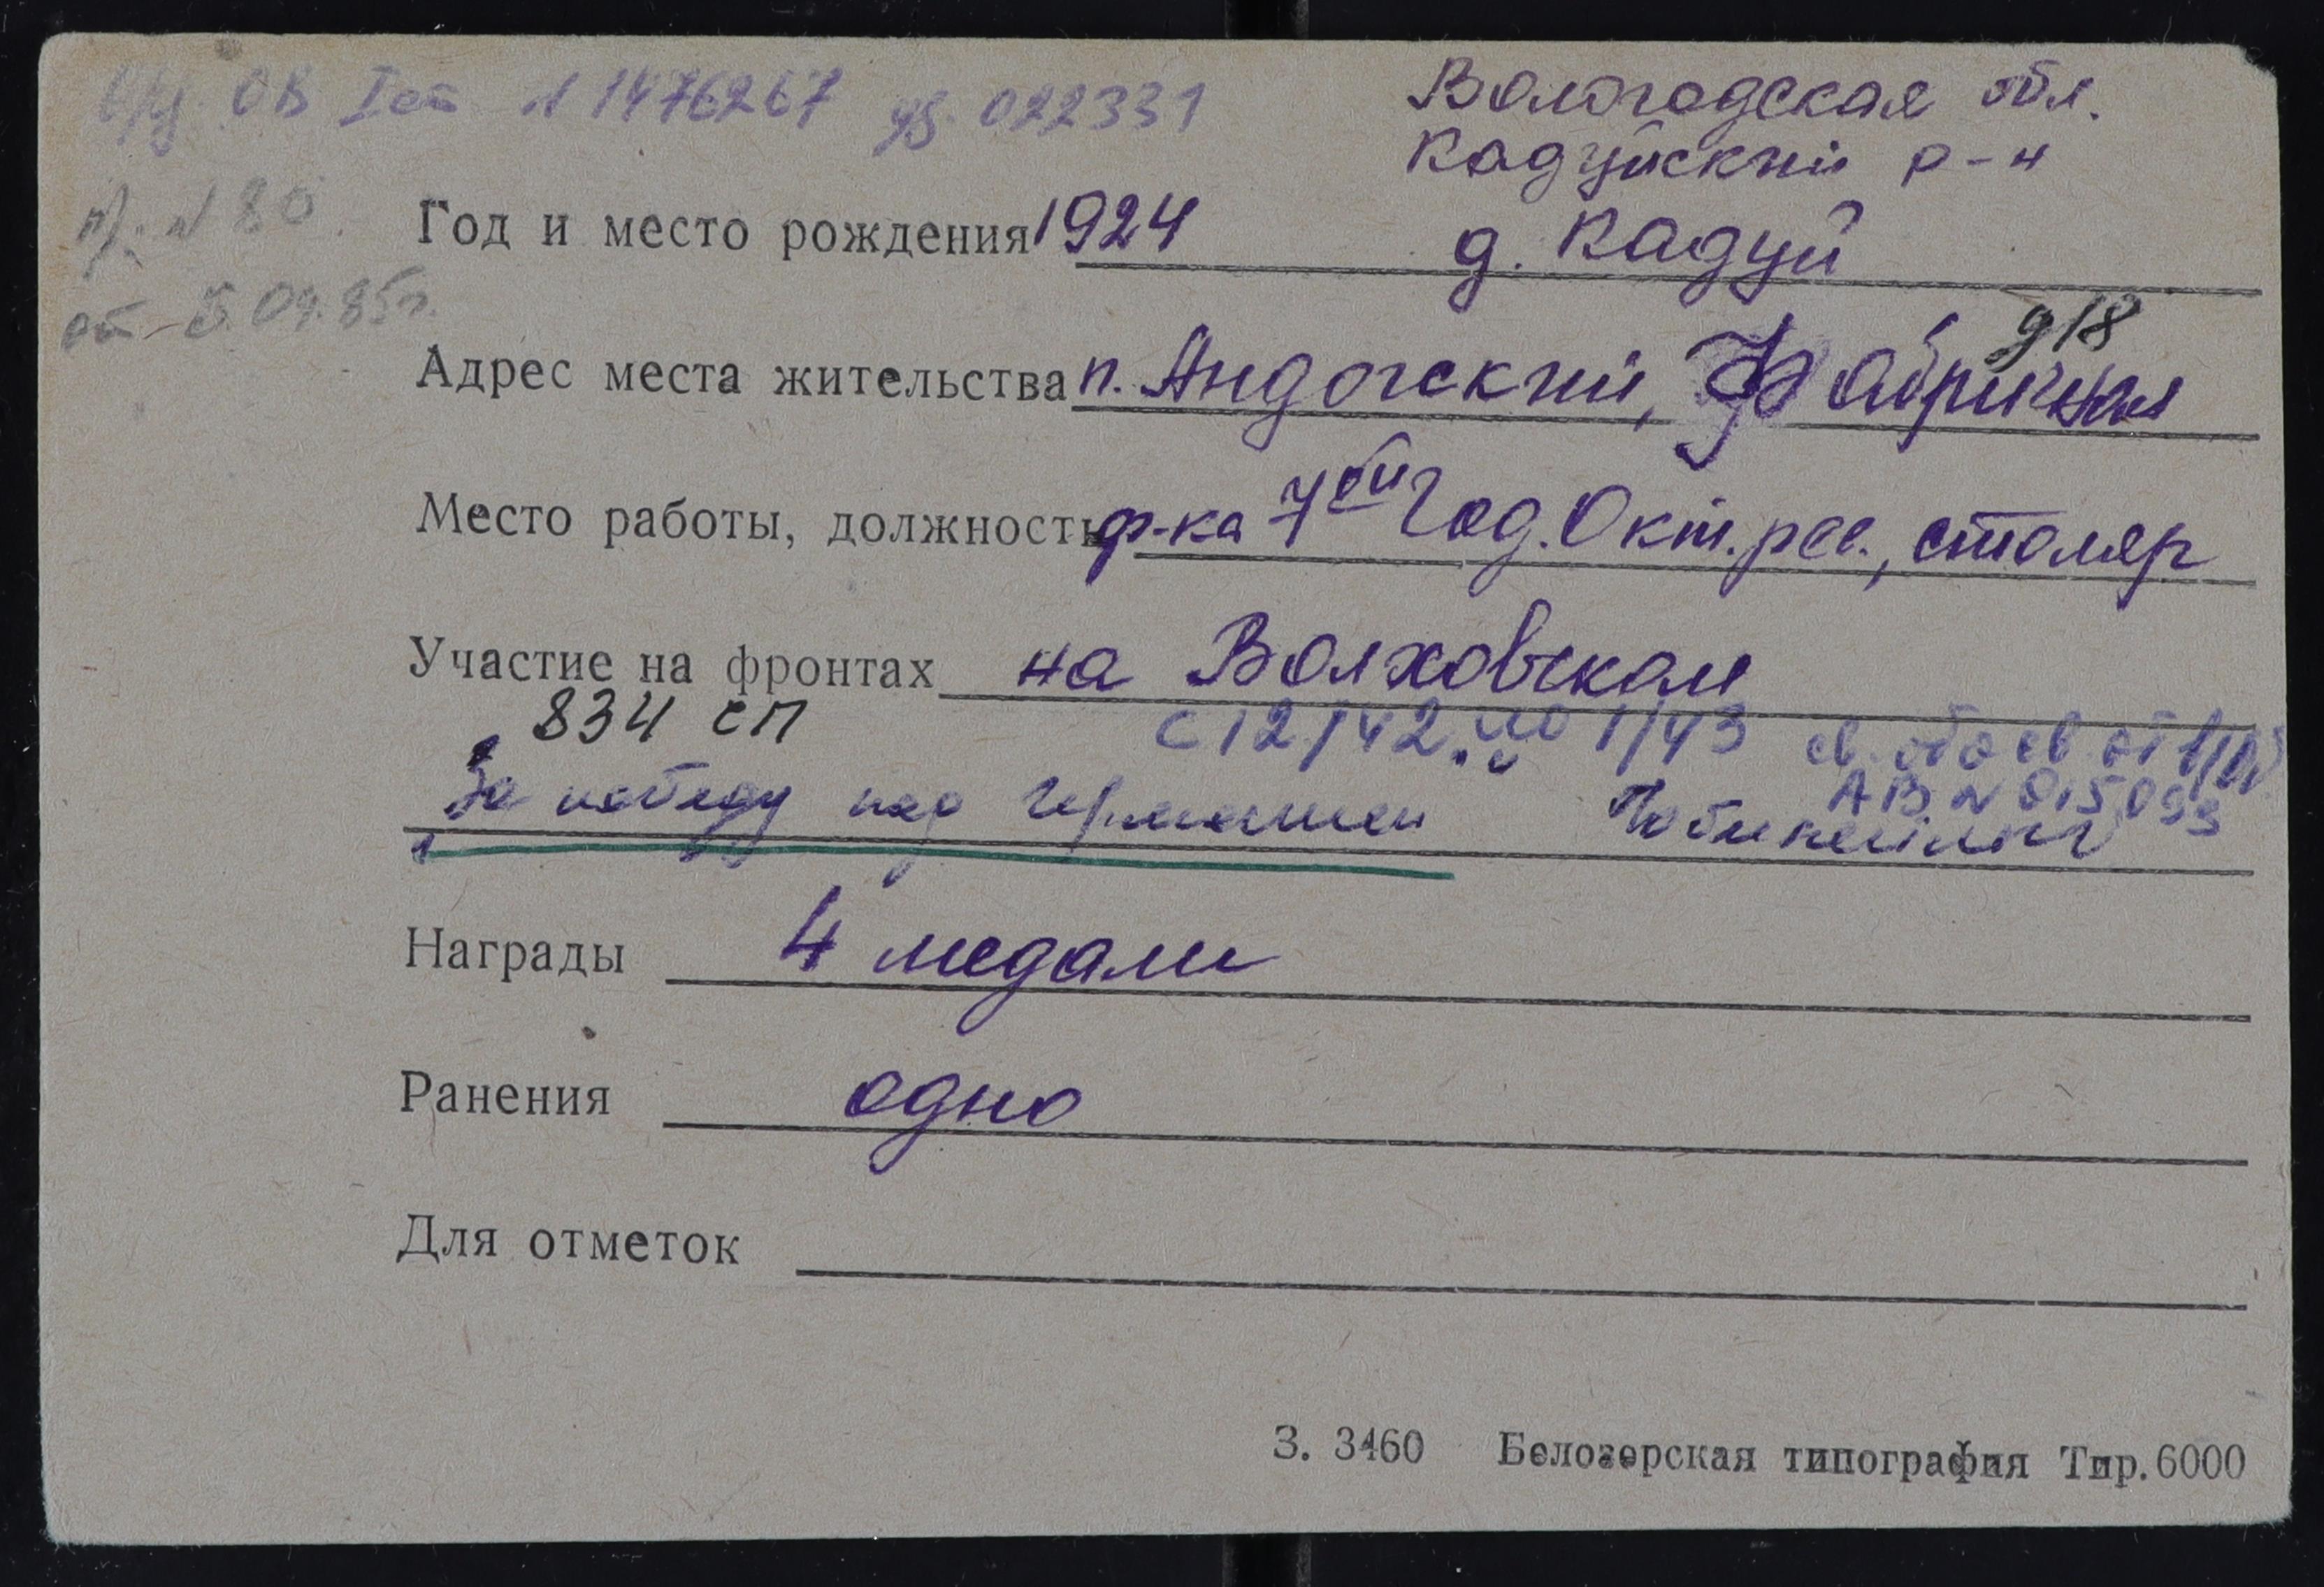 ОВ I ст N 1476267 уд. 022331
Вологодская обл.
Кадуйский р-н
N 80
Год и место рождения 1924 д. Кадуй
от 5.04.85г.
д 18
Адрес места жительства п. Андогский, Фабричная
Место работы, должность ф-ка 7ой Год. Окт. рев., столяр
Участие на фронтах на Волховском
834 сп с 12/42 по 1/43
За победу над Германией Юбилейных
Награды 4 медали
Ранения одно
Для отметок
З. 3460 Белозерская типография Тир. 6000